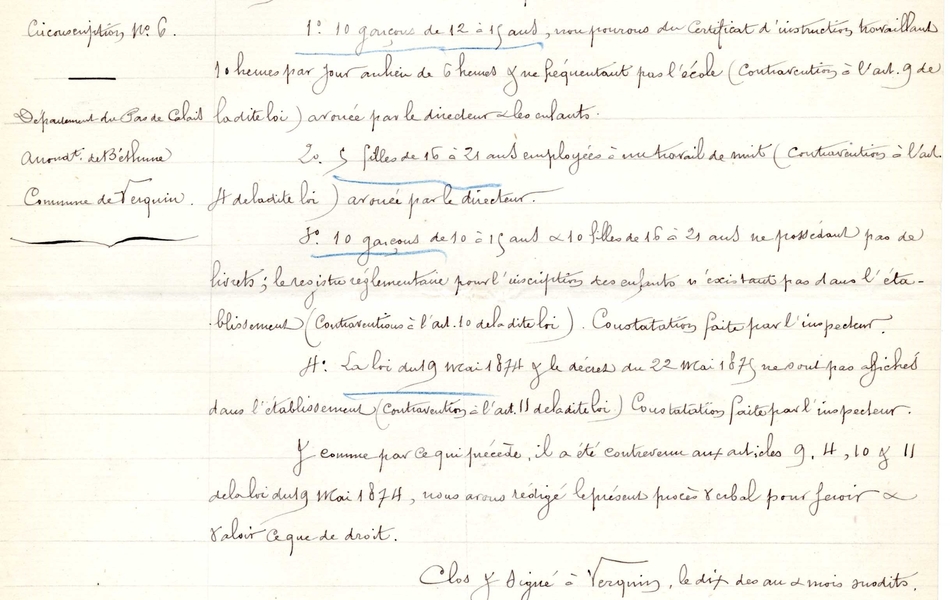 Circonscription No. 6.
Département du Pas de Calais
Arrondt. de Béthune
Commune de Verquin.
1o. 10 garçons de 12 à 15 ans, non pourvus du Certificat d'instruction travaillant
10 heures par jour au lieu de 6 heures & ne fréquentant pas l'école (Contravention à l'art. 9 de
la dite loi) avouée par le directeur & les enfants.
2o. 5 filles de 16 à 21 ans employées à un travail de nuit (Contravention à l'art.
4 de la dite loi) avouée par le directeur.
3o. 10 garçons de 10 à 15 ans & 10 filles de 16 à 21 ans ne possédant pas de
livrets; le registre réglementaire pour l'inscription des enfants n'existant pas dans l'éta-
blissement (Contraventions à l'art. 10 de la dite loi). Constatation faite par l'inspecteur.
4o. La loi du 19 Mai 1874 & le décret du 22 Mai 1875 ne sont pas affichés
dans l'établissement (Contravention à l'art. 11 de la dite loi.) Constatation faite par l'inspecteur.
& comme par ce qui précède, il a été contrevenu aux articles 9, 4, 10 & 11
de la loi du 19 Mai 1874, nous avons rédigé le présent procès verbal pour servir &
valoir ce que de droit.
Clos & signé à Verquin, le dix des an & mois susdits.